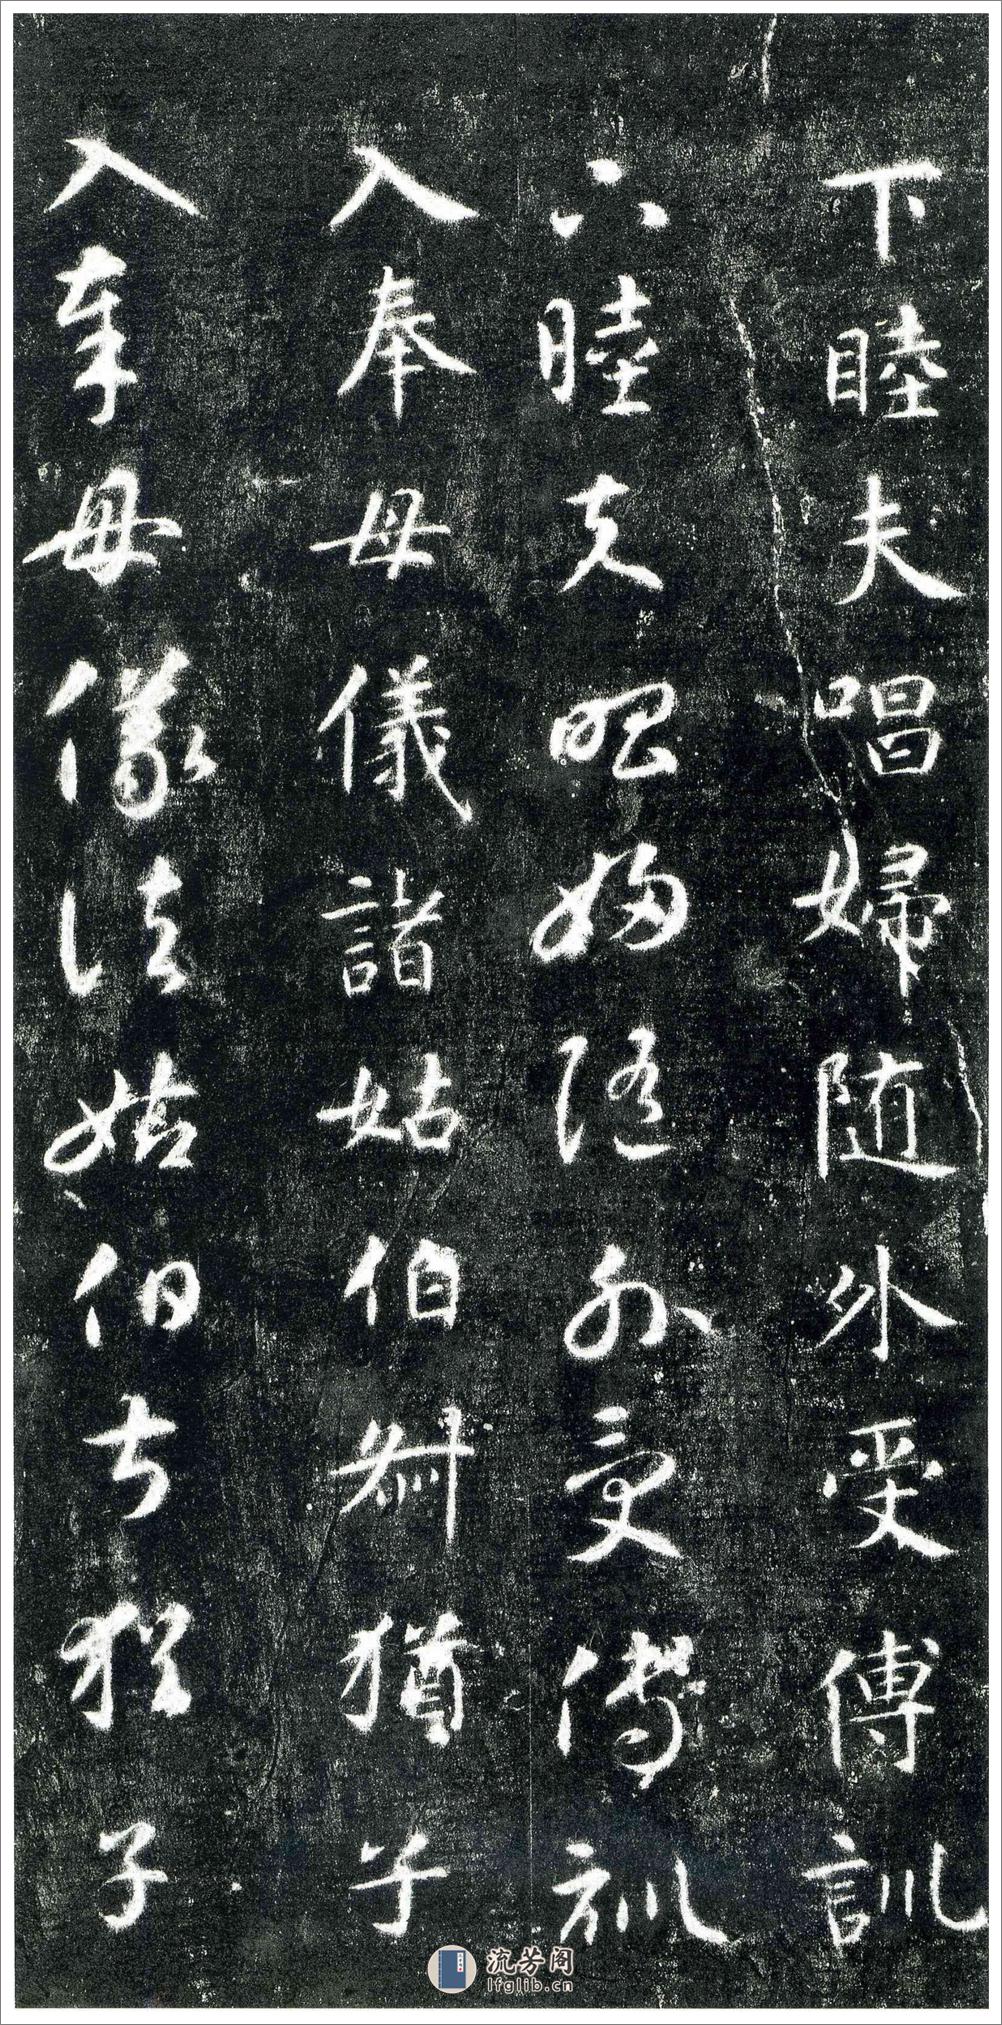 下睦夫唱婦随外受傅訓
下睦夫唱婦随外受傅訓
入奉母儀諸姑伯叔猶子
入奉母儀諸姑伯叔猶子
流芳阁
lfglib.cn